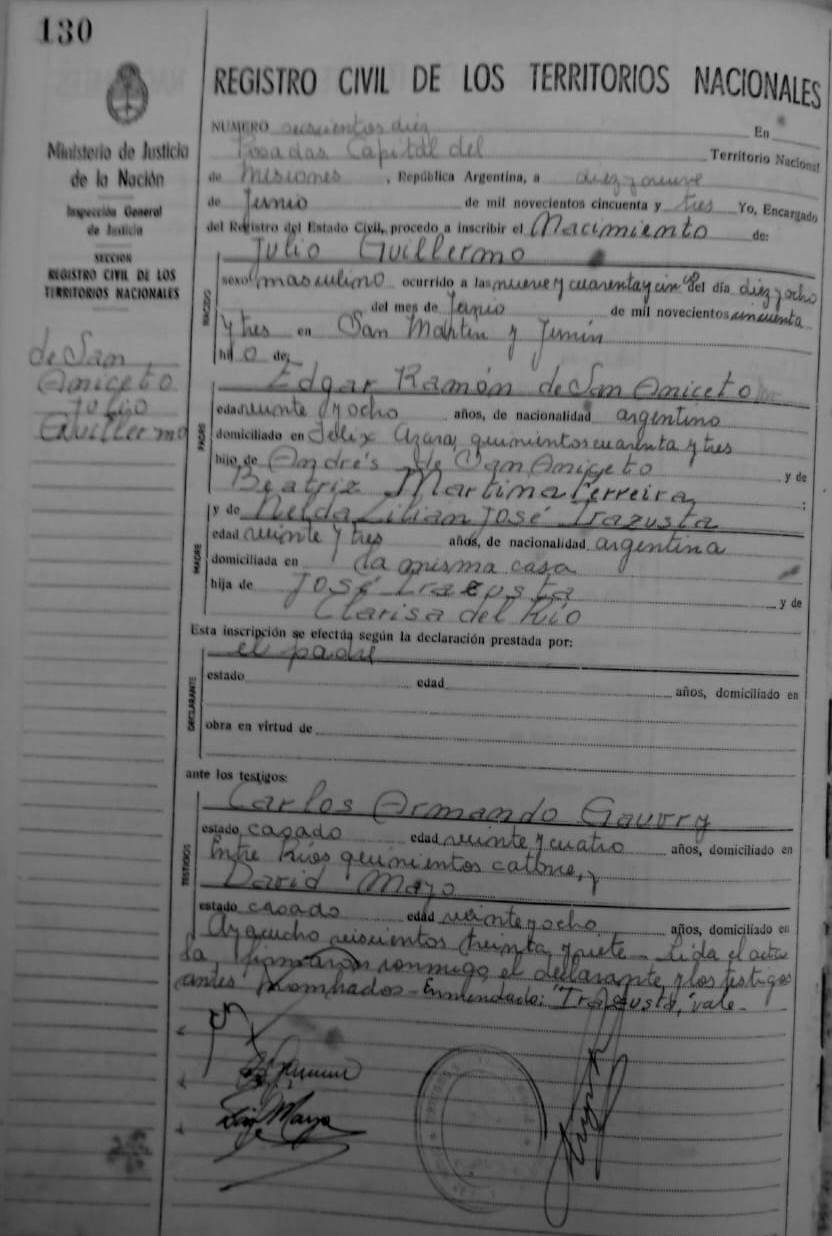 130
REGISTRO CIVIL DE LOS TERRITORIOS NACIONALES
Ministerio de Justicia
de la Nación
Inspección General
de Justicia
SECCION
REGISTRO CIVIL DE LOS
TERRITORIOS NACIONALES
de San
Aniceto
Julio
Guillermo
NUMERO seiscientos diez En
Posadas Capital del Territorio Nacional
de Misiones, República Argentina, a diez y nueve
de Junio de mil novecientos cincuenta y tres Yo, Encargado
del Registro del Estado Civil, procedo a inscribir el Nacimiento de:
Julio Guillermo
NACIDO
sexo masculino ocurrido a las nueve y cuarenta y cinco del día diez y ocho
del mes de Junio de mil novecientos cincuenta
y tres en San Martin y Junín
hijo de:
PADRE
Edgar Ramón de San Aniceto
edad veinte y ocho años, de nacionalidad argentino
domiciliado en Félix Azara, quinientos cuarenta y tres
hijo de Andrés de San Aniceto y de
Beatriz Martina Ferreira ;
MADRE
y de Nelda Lilian José Irazusta
edad veinte y tres años, de nacionalidad argentina
domiciliada en la misma casa
hija de José Irazusta y de
Clarisa del Río
Esta inscripción se efectúa según la declaración prestada por:
DECLARANTE
el padre
estado edad años, domiciliado en
obra en virtud de
ante los testigos:
TESTIGOS
Carlos Armando Gauvry
estado casado edad veinte y cuatro años, domiciliado en
Entre Ríos quinientos catorce, y
David Mayo
estado casado edad veinte y ocho años, domiciliado en
Ayacucho seiscientos treinta y siete - Leida el acta
la firmaron conmigo el declarante y los testigos
antes nombrados - Enmendado: "Irazusta," vale -